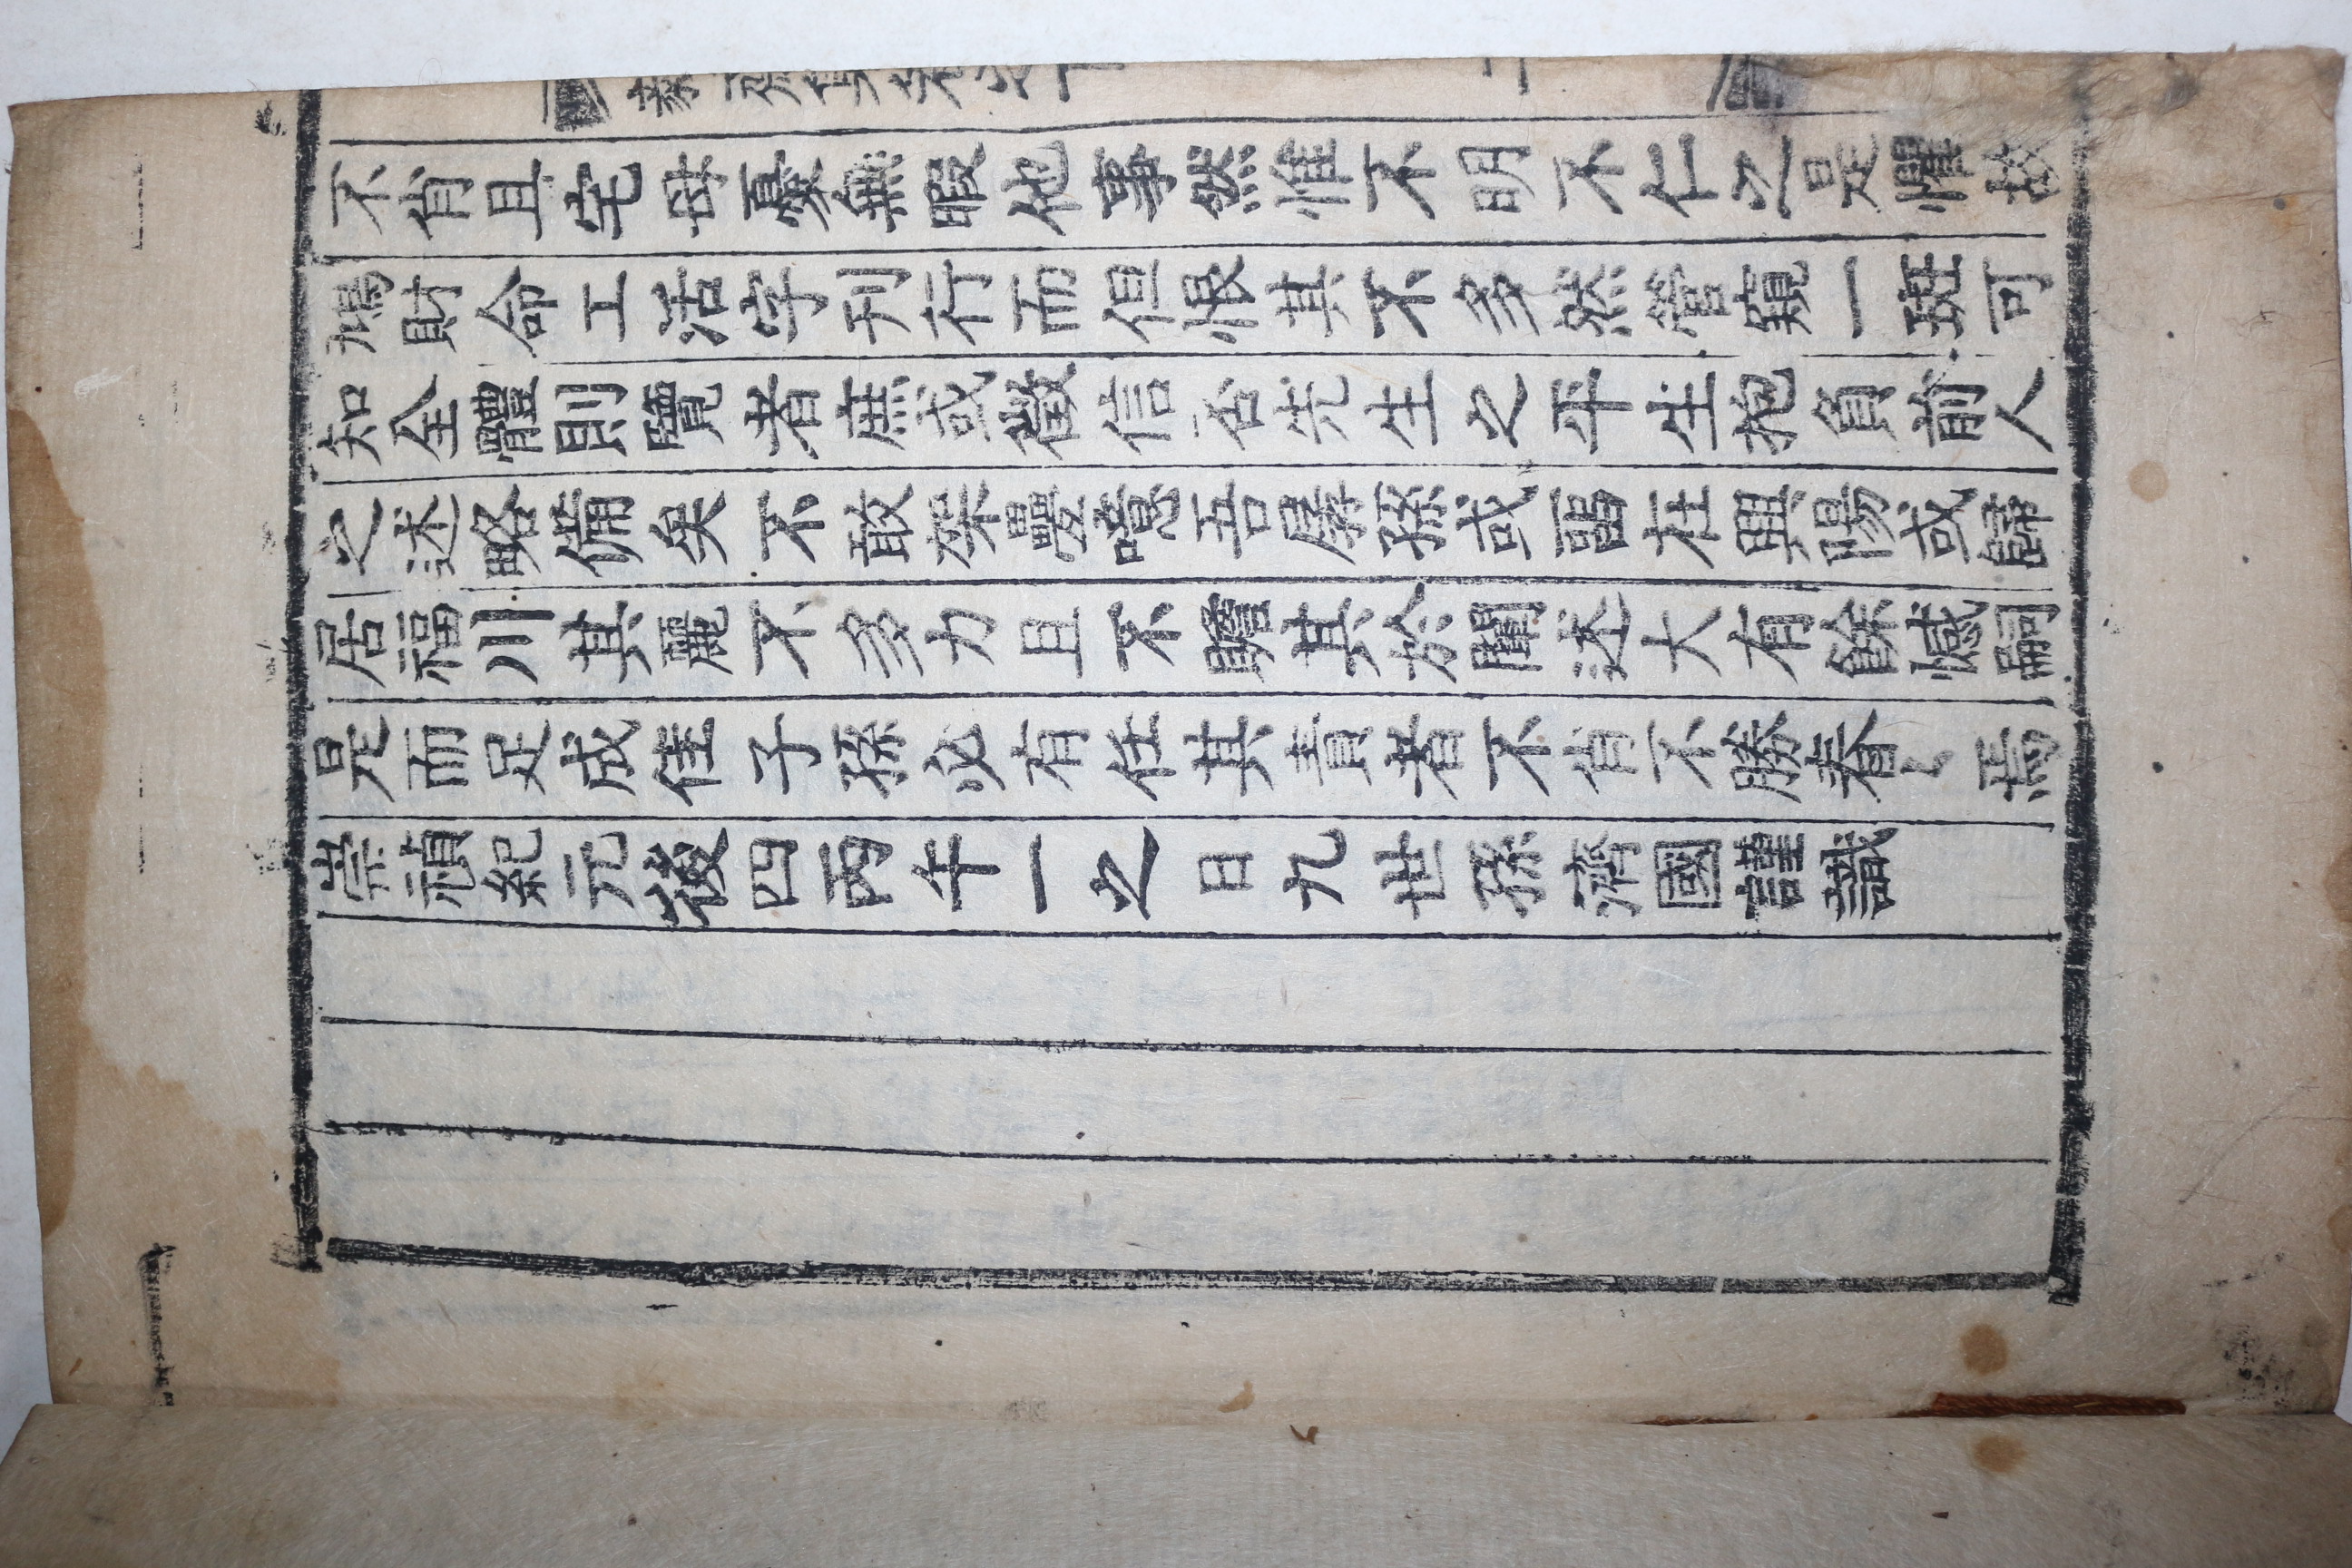 不肖且宅母憂無暇他事然惟不明不仁之是懼故
鳩財命工活字刊行而但恨其不多然管窺一斑可
知全體則覽者庶或徵信否先生之平生抱負前人
之述略備矣不敢架疊噫吾孱孫或留在興陽或歸
居福川其麗不多力且不贍其於闡述大有餘憾嗣
是而足成佳子孫必有任其責者不肖不勝眷〻焉
崇禎紀元後四丙午一之日九世孫濟國謹識